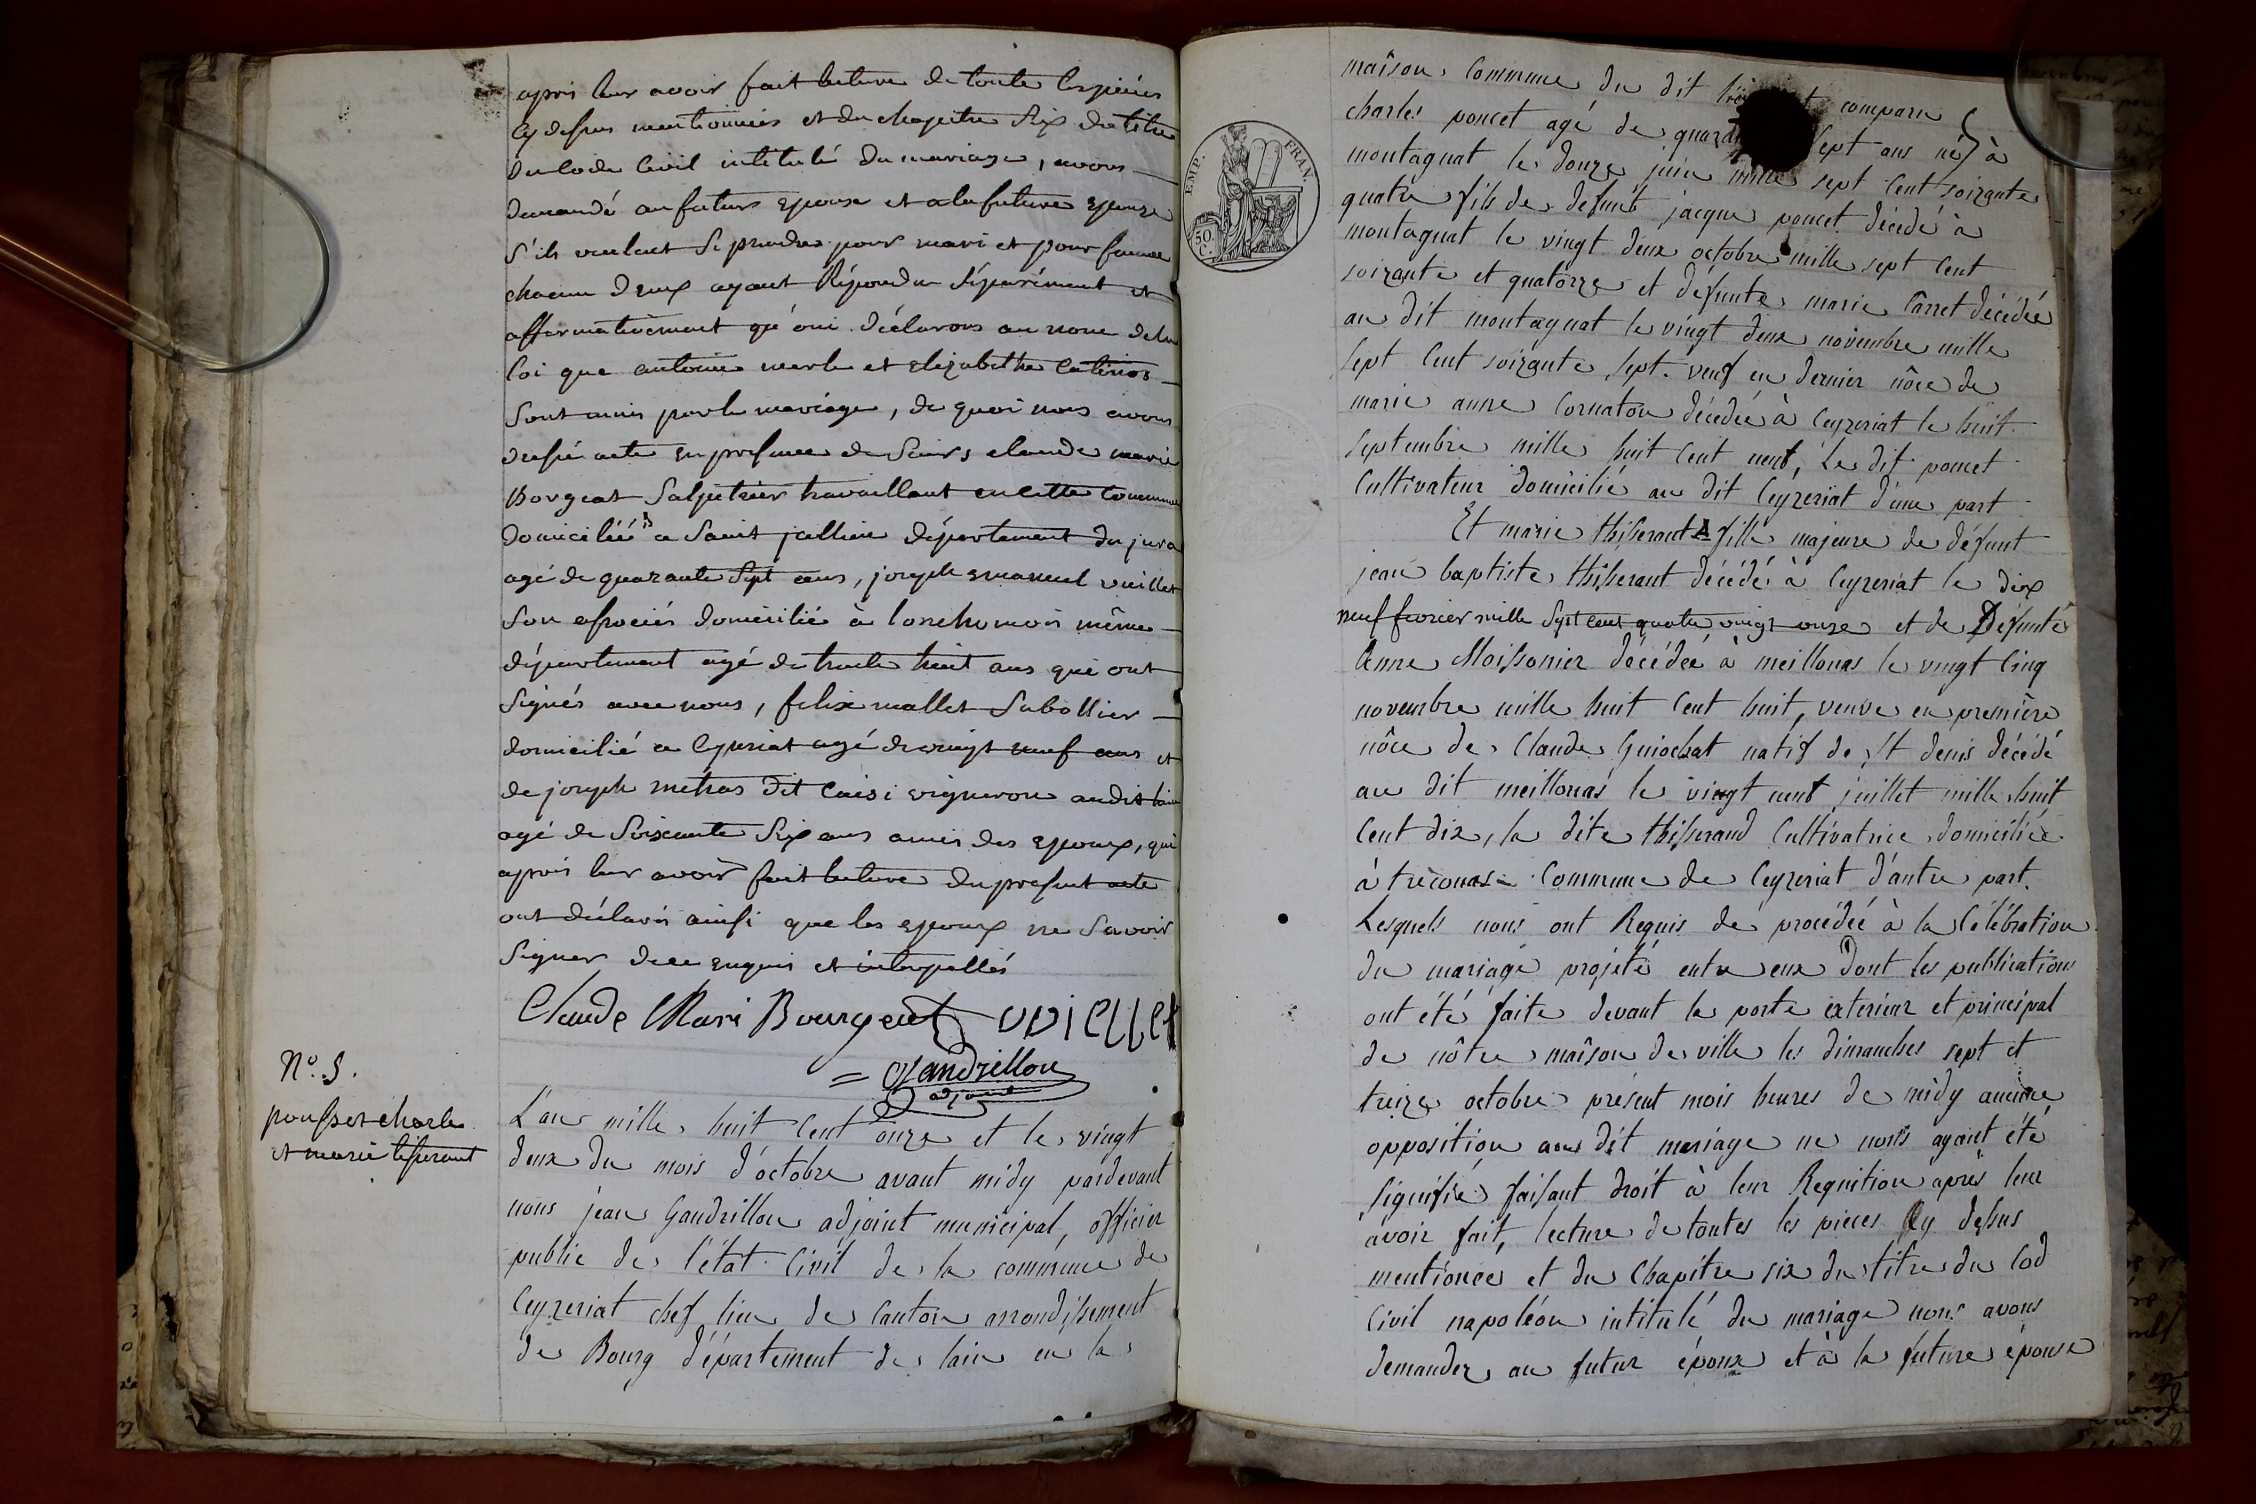 après leur avoir fait lecture de toute les pièces
cy dessus mentionnées et du chapitre six du titre
du Code Civil intitulé du mariage, avons
demandé au futur epoux et a la future epouze
s'ils veulent se prendre pour mari et pour femme
chacun d'eux ayant Répondu séparément et
affirmativement qu'oui déclarons au nom de la
Loi que antoine merle et elizabethe
sont unis par le mariage, de quoi nous avons
dressé acte en presence de Sieurs claude marie
Borgeat Salpétrier travaillant en cette commune
domiciliés a Saint jullien département du jura
agé de quarante sept ans, joseph emanuel vuillet
son associés domicilié à lonchomois même
département agé de trente huit ans qui ont
signés avec nous, felix mallet Sabottier
domicilié a Ceyzeriat agé de vingt neuf ans et
de joseph métras dit Caisi vigneron audit lieu
agé de soixante six ans amis des epoux, qui
après leur avoir fait lecture du present acte
ont déclarés ainsi que les epoux ne savoir
signer de ce enquis et interpellés
Claude Mari Bourgeat vviellet
= Gandrillon
adjoint
N.o 5.
pousset charle
et marie tisserant
L'an mille huit cent onze et le vingt
deux du mois d'octobre avant midy pardevant
nous jean Gandrillon adjoint municipal, officier
public de l'état Civil de la commune de
Ceyzeriat chef lieu de Canton arrondissement
de Bourg département de lain en la
EMP. FRAN.
50
C.
maison Commune du dit comparu
charles poncet agé de sept ans né à
montagnat le douze juin mille sept cent soixante
quatre fils de defunt jacque poncet décédé à
montagnat le vingt deux octobre mille sept cent
soixante et quatorze et défunte marie Carret décédée
au dit montagnat le vingt deux novembre mille
sept cent soixante sept. veuf en dernier nôce de
marie anne Cornaton décédée à Ceyzeriat le huit
septembre mille huit cent neuf, Le dit poncet
Cultivateur domicilié au dit Ceyzeriat d'une part
Et marie thisserant A fille majeure de défunt
jean baptiste thisserant décédé à Ceyzeriat le dix
neuf fevrier mille sept cent quatre vingt onze et de Défunte
Anne Moissonier décédée à meillonas le vingt cinq
novembre mille huit cent huit, veuve en première
nôce de Claude Guiochat natif de St denis décédé
au dit meillonas le vingt neuf juillet mille huit
cent dix, la dite thisserand Cultivatrice domiciliée
à treconas Commune de Ceyzeriat d'autre part.
Lesquels nous ont Requis de procédéé à la Célébration
du mariage projeté entre eux dont les publications
ont été faite devant la porte exterieur et principal
de nôtre maison de ville les dimanches sept et
treize octobre présent mois heures de midy aucune
opposition au dit mariage ne nous ayant été
signifié faisant droit à leur Requition après leur
avoir fait, lecture de toutes les pieces Cy dessus
mentionce et du Chapitre six du titre du Cod
Civil napoléon intitulé du mariage nous avons
demander au futur époux et à la future épouse